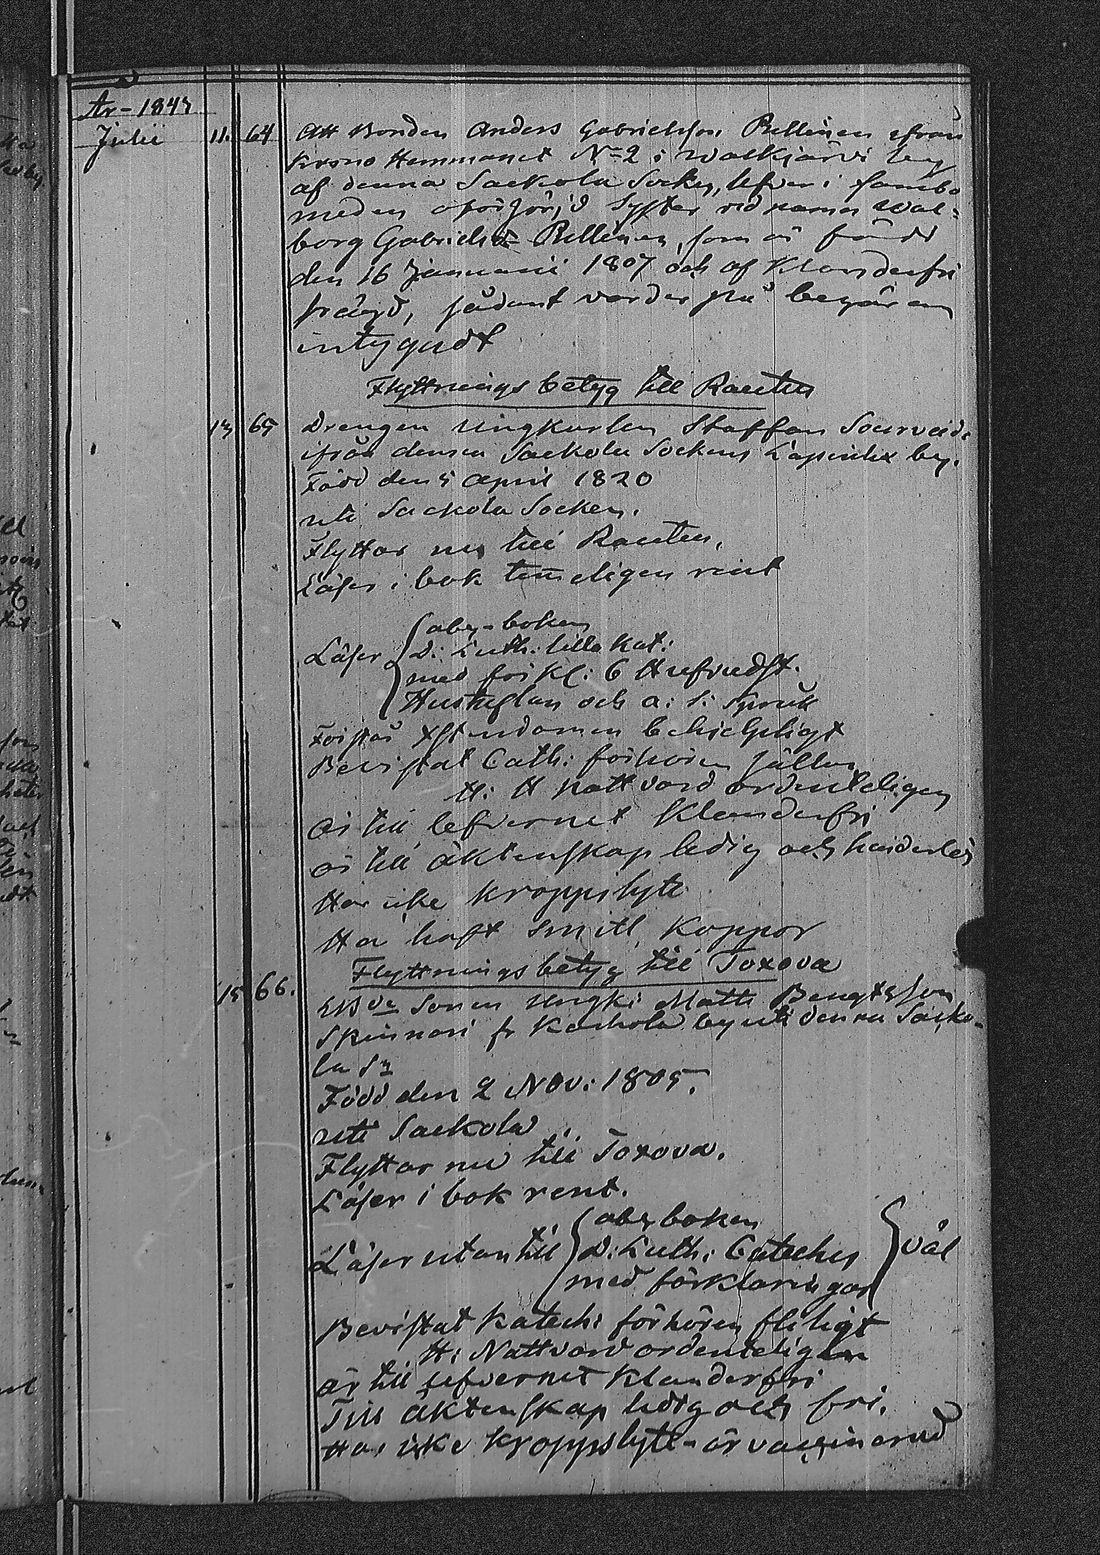 År - 1843
Julii 11. 64 Att Bonden Anders Gabrielsson Pellinen ifrån
Krono Hemmanet No 2 i Walkjärvi by
af denna Sackola Socken, lefver i sambo
med en oförsörjd Syster vid namn Wal=
borg Gabrielsdr Pellinen, som är född
den 16 Januarii 1807 och af Klanderfri
frägd, sådant varder på begäran
intygadt
Flyttnings betyg till Rautus
13 65 Drengen ungkarlen Staffan
ifrån denna Sackola Sockens Lapinlax by.
Född den 5 April 1820
uti Sackola Socken.
Flyttar nu till Rautus.
Läser i bok temeligen rent
Läser abc-boken
D: Luth: lilla Kat:
med förkl: 6 Hufvudst.
Hustaflan och a: s: språk
Förstår Xstendomen behjelpligt
Bevistat Cath: förhören sällan
H: H Nattvard ordenteligen
är till lefvernet Klanderfri
är till äktenskap ledig och hinderlös
Har icke kroppslyte
Ha haft Smitt Koppor
Flyttningsbetyg till Toxova
15 66. Sonen ungk: Matts Bengtsson
Skinnari fr Kachola by uti denna Sacko-
la Sn
Född den 2 Nov: 1805.
uti Sackola
Flyttar nu till Toxova.
Läser i bok rent.
Läser utantill abc boken
D: Luth: Cateches väl
med förklaringar
Bevistat Katech: förhören fliligt
H: Nattvard ordenteligen
är till lefvernet Klanderfri
Till äktenskap ledig och fri.
Har icke kroppslyte - är vaccinerad